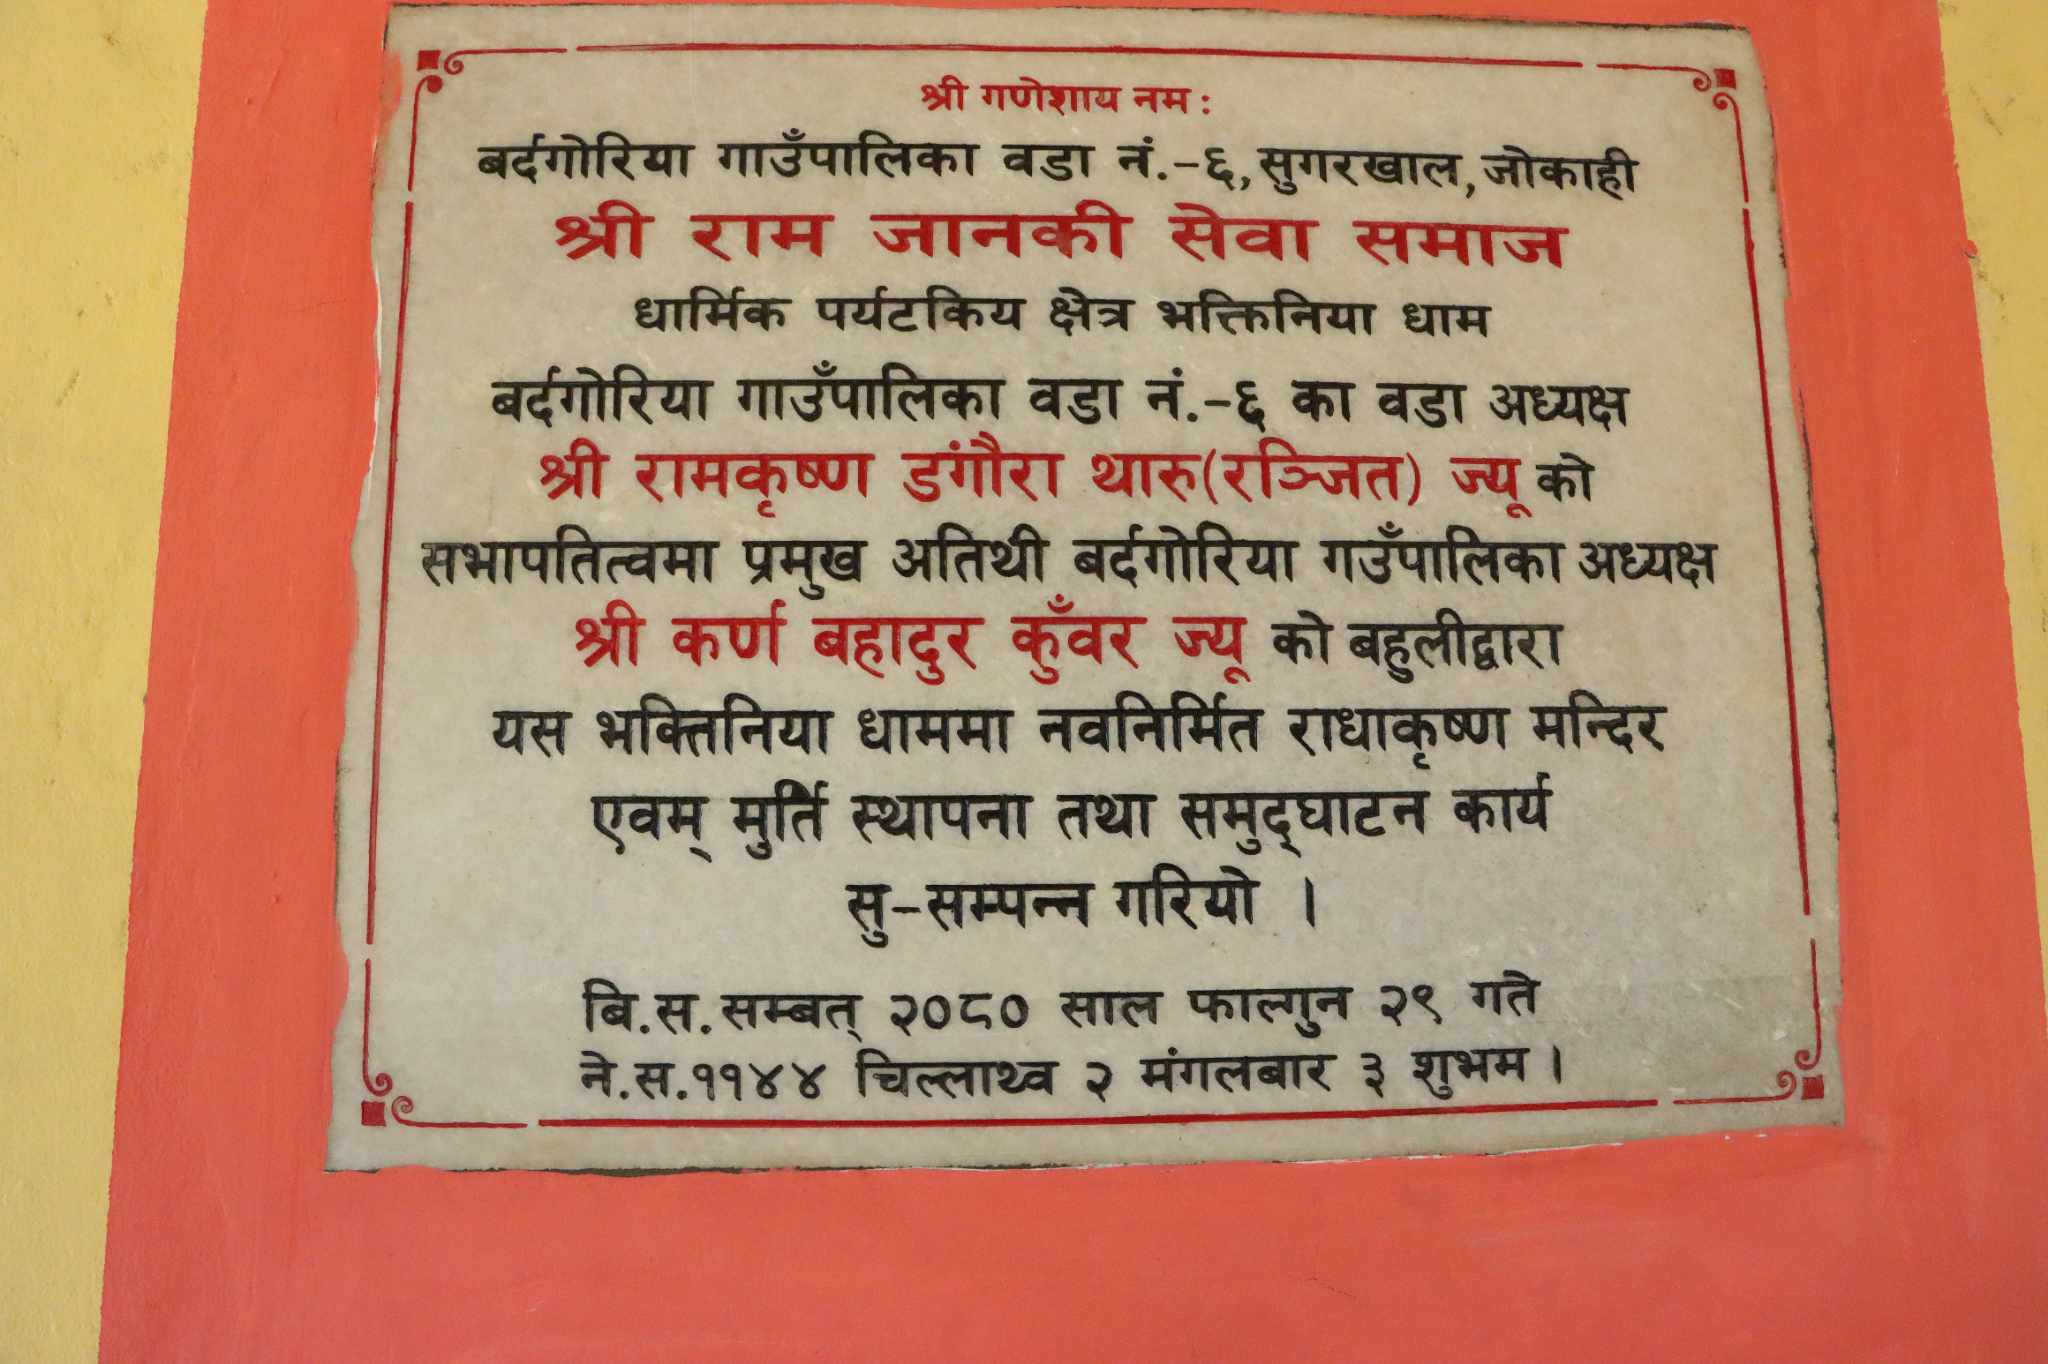 श्री गणेशाय नम :
बर्दगोरिया गाउँपालिका वडा नं.-६, सुगरखाल, जोकाही
श्री राम जानकी सेवा समाज
धार्मिक पर्यटकिय क्षेत्र भक्तिनिया धाम
बर्दगोरिया गाउँपालिका वडा नं.-६ का वडा अध्यक्ष
श्री रामकृष्ण डंगौरा थारु(रञ्जित) ज्यू को
सभापतित्वमा प्रमुख अतिथी बर्दगोरिया गउँपालिका अध्यक्ष
श्री कर्ण बहादुर कुँवर ज्यू को बहुलीद्वारा
यस भक्तिनिया धाममा नवनिर्मित राधाकृष्ण मन्दिर
एवम् मुर्ति स्थापना तथा समुद्घाटन कार्य
सु-सम्पन्न गरियो ।
बि.स.सम्बत् २०८० साल फाल्गुन २९ गते
ने.स.११४४ चिल्लाथ्व २ मंगलबार ३ शुभम ।